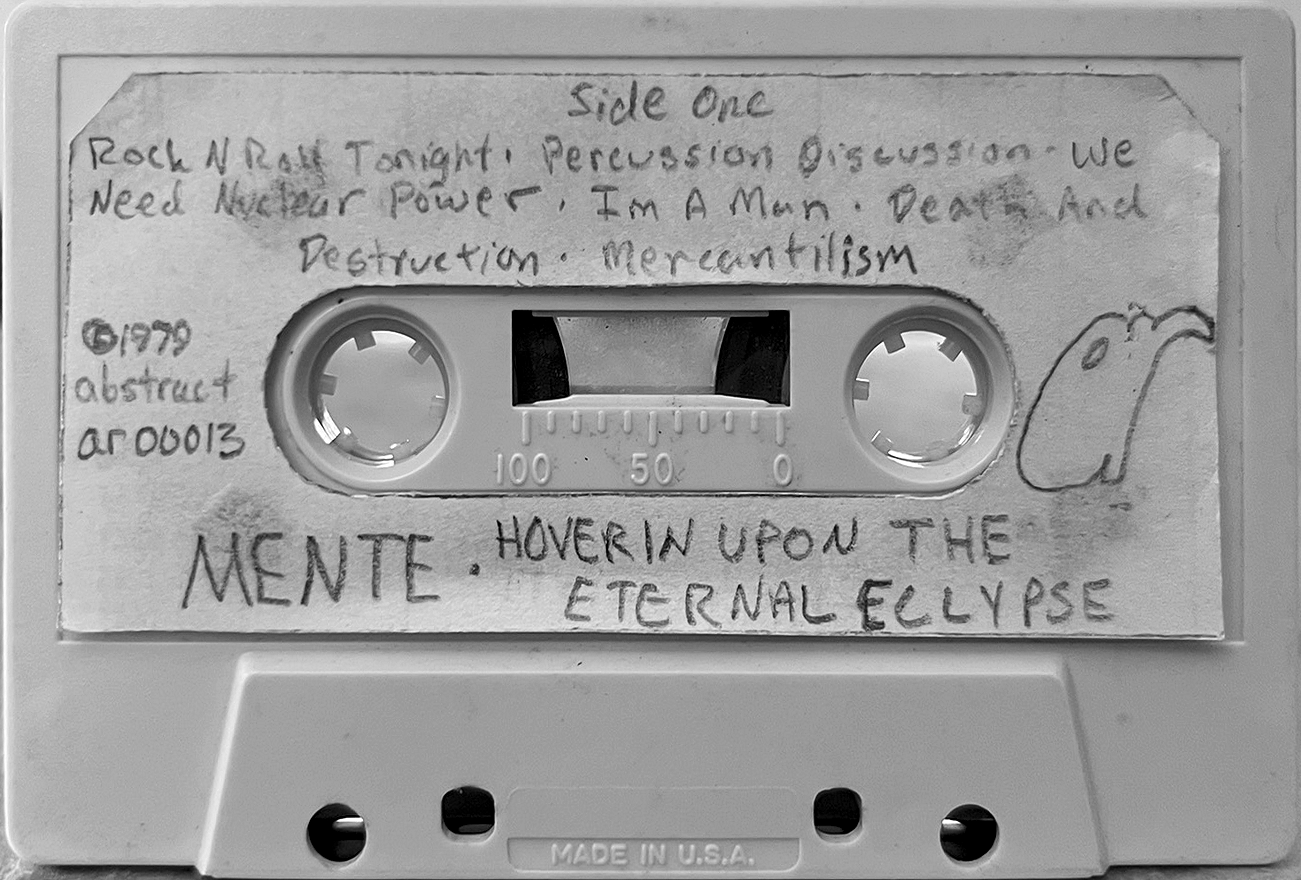 Side One
Rock N Roll Tonight · Percussion Discussion · We
Need Nuclear Power · Im A Man · Death And
Destruction · Mercantilism
©1979
abstract
ar00013
100 50 0
MENTE · HOVERIN UPON THE
ETERNAL ECLYPSE
MADE IN U.S.A.